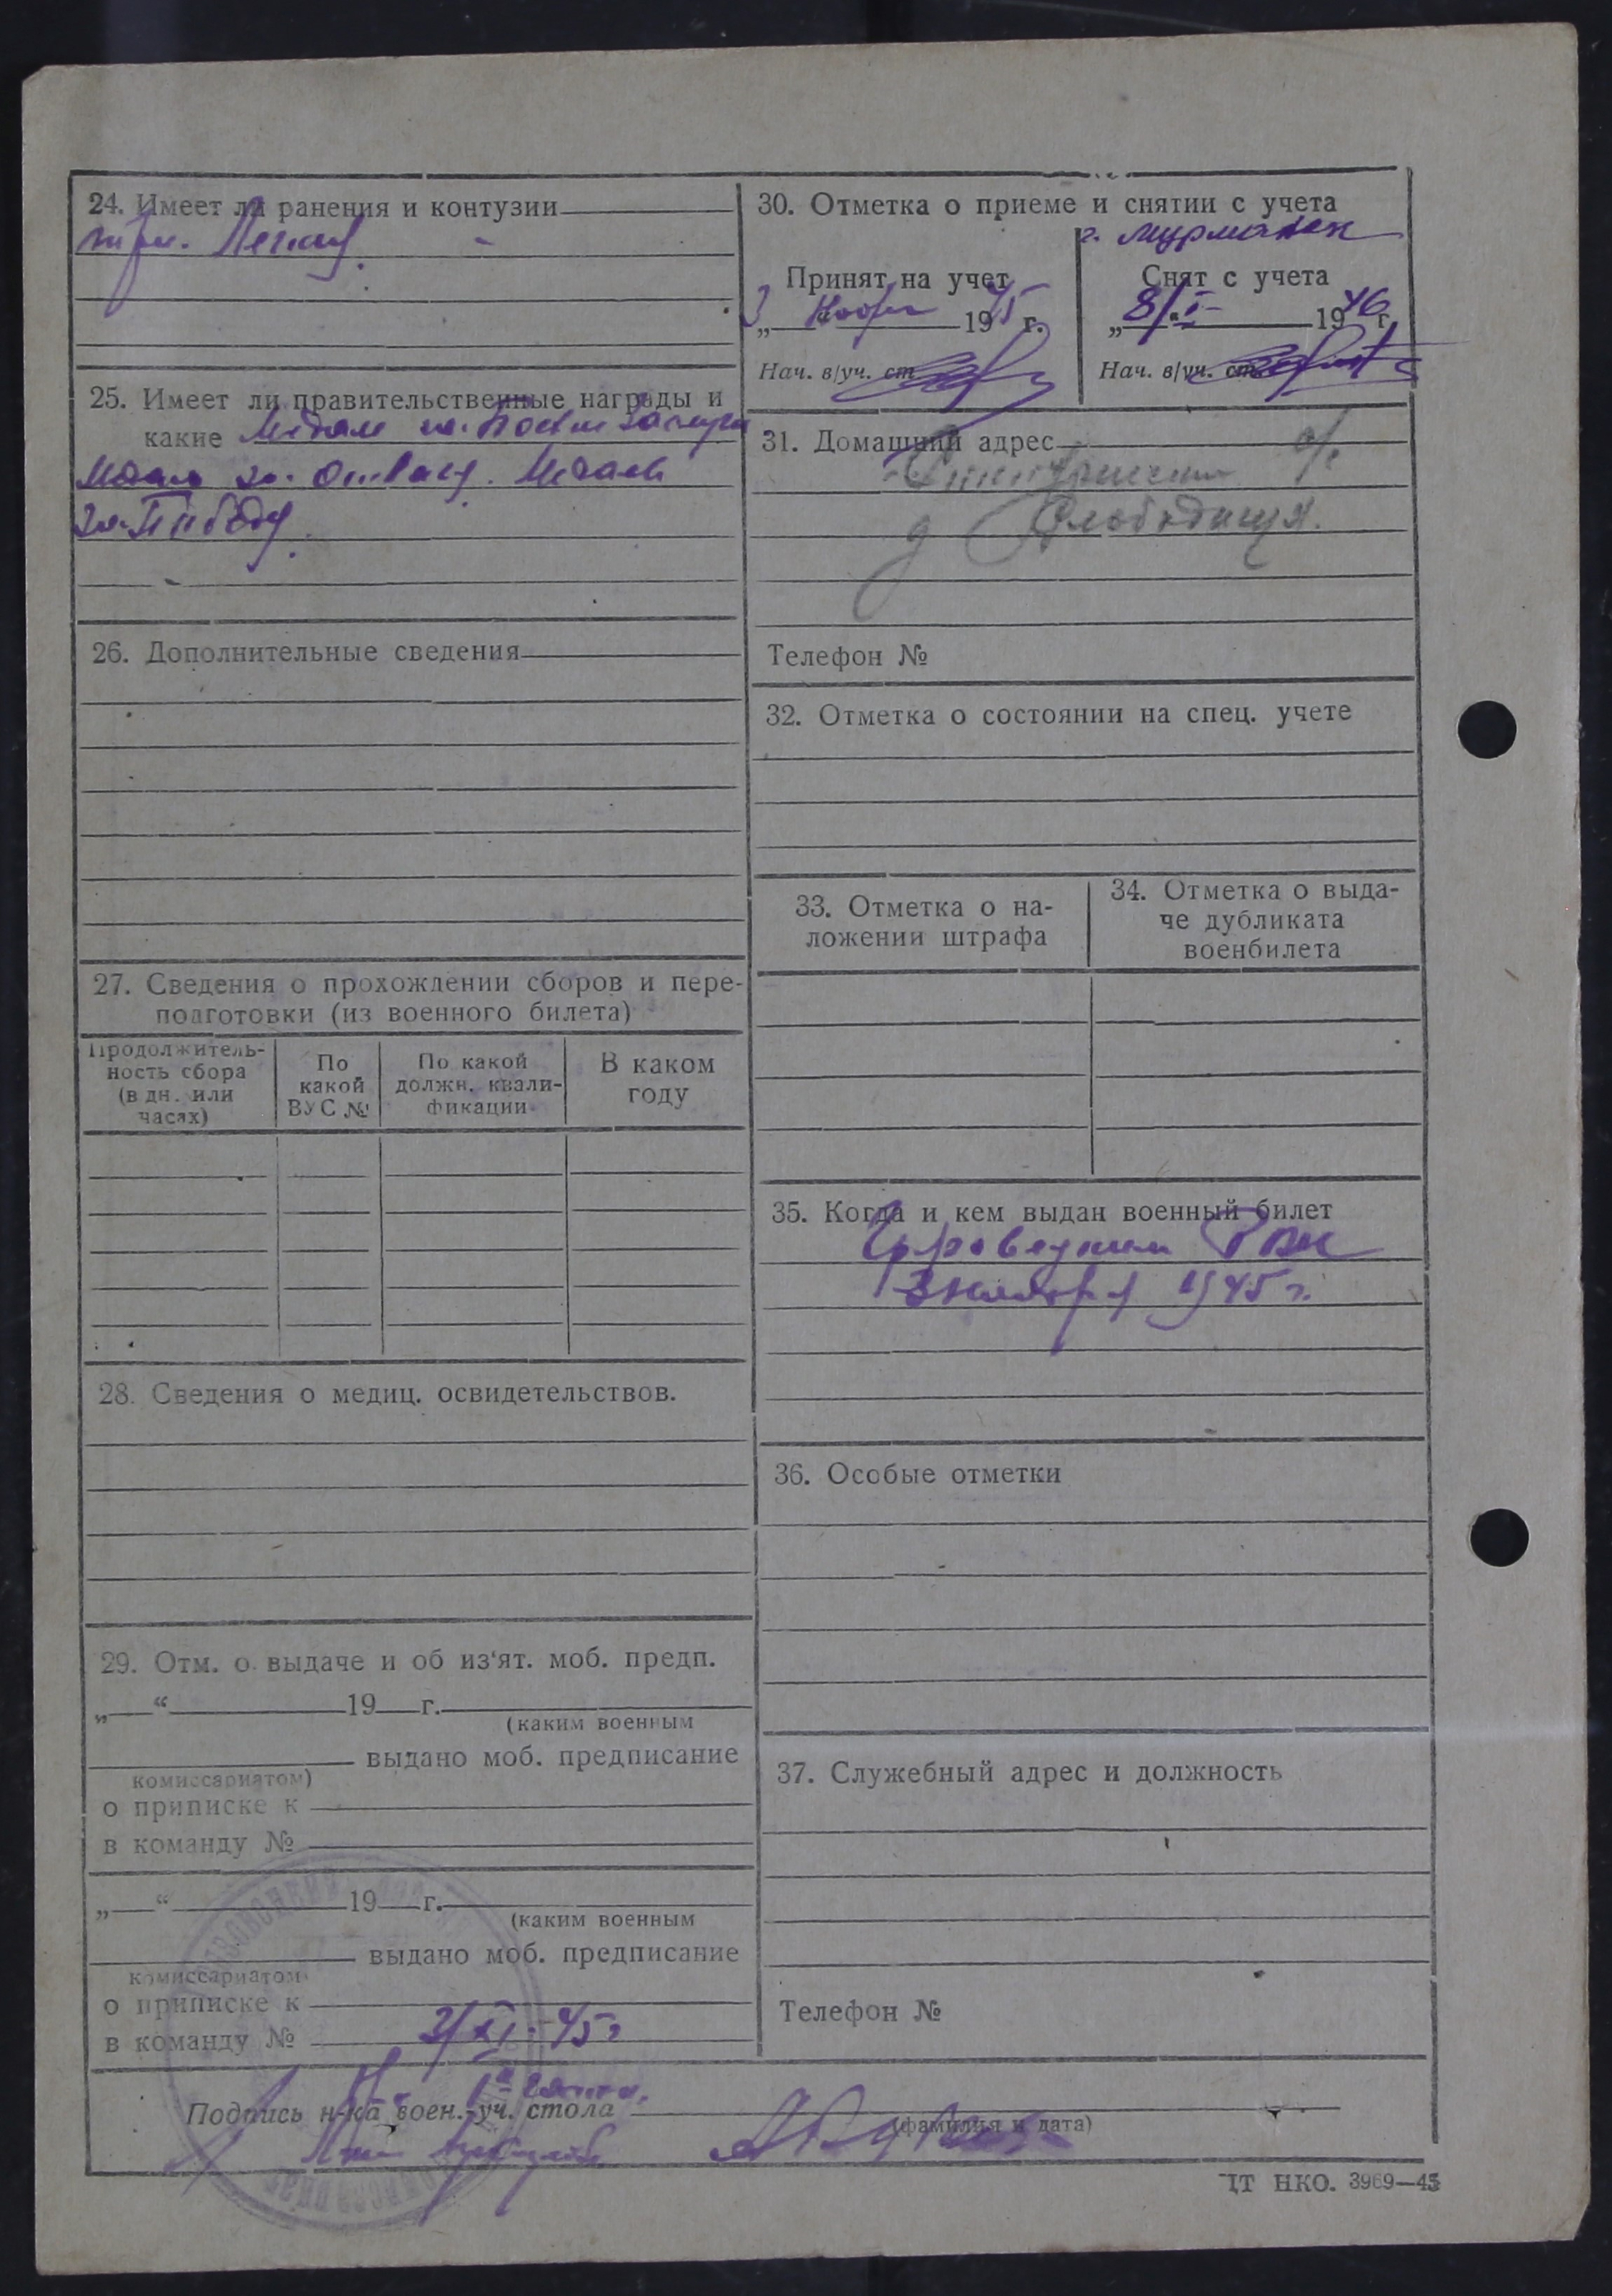 24. Имеет ли ранения и контузии
три.
25. Имеет ли правительственные награды и
какие Медаль за Боевые Заслуги
Медаль за Отвагу. Медаль
за Победу.
26. Дополнительные сведения
27. Сведения о прохождении сборов и пере-
подготовки (из военного билета)
Продолжитель-
ность сбора
(в дн. или
часах)
По
какой
ВУС №
По какой
должн. квали-
фикации
В каком
году
28. Сведения о медиц. освидетельствов.
29. Отм. о выдаче и об из‘ят. моб. предп.
„ “ 19 г.
(каким военным
выдано моб. предписание
комиссариатом)
о приписке к
в команду №
„ “ 19 г.
(каким военным
выдано моб. предписание
комиссариатом)
о приписке к
в команду № 3/XI-45г
30. Отметка о приеме и снятии с учета
г. Мурманск
Принят на учет
3 Ноябр 1945 г.
Нач. в/уч. ст
Снят с учета
„ 8/I- 1946 г.
Нач. в/уч. ст
31. Домашний адрес
д Слободища.
Телефон №
32. Отметка о состоянии на спец. учете
33. Отметка о на-
ложении штрафа
34. Отметка о выда-
че дубликата
военбилета
35. Когда и кем выдан военный билет
РВК
3 ноября 1945 г.
36. Особые отметки
37. Служебный адрес и должность
Телефон №
Подпись н-ка воен.-уч. стола
(фамилия и дата)
ЦТ НКО. 3969—45